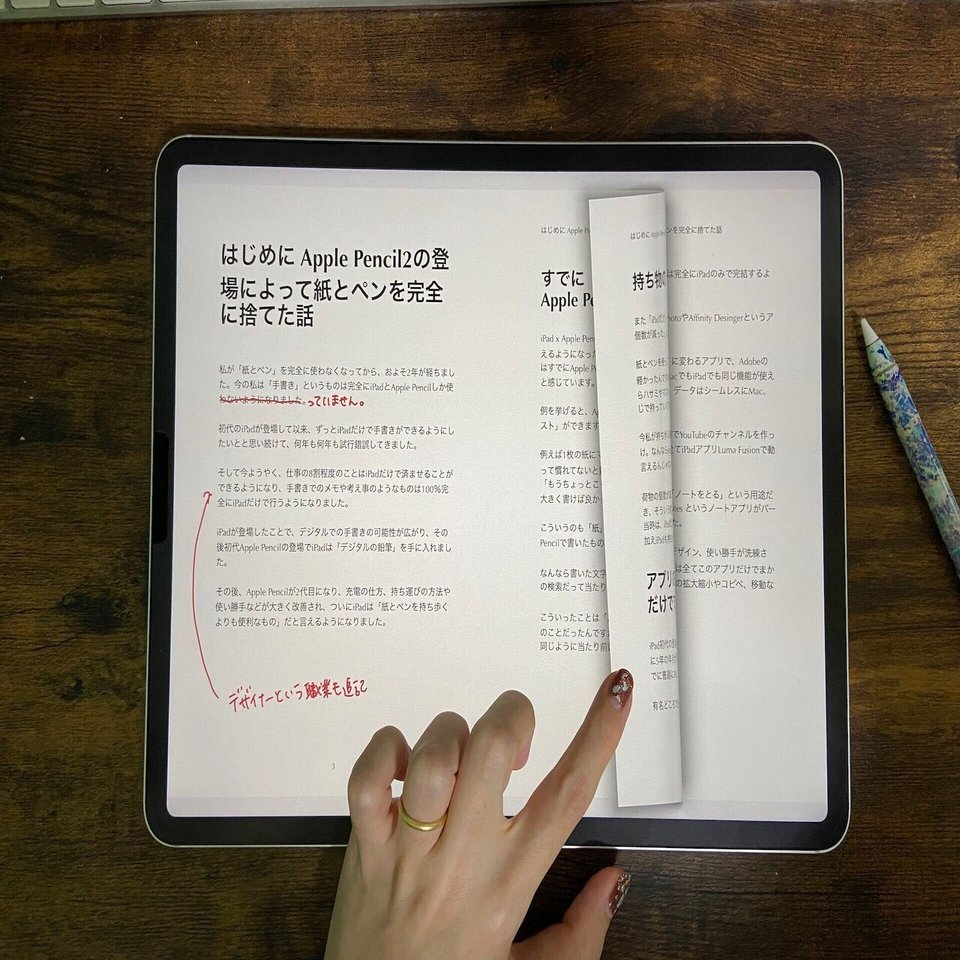 はじめに Apple Pencil2の登
場によって紙とペンを完全
に捨てた話
私が「紙とペン」を完全に使わなくなってから、およそ2年が経ちまし
た。今の私は「手書き」というものは完全にiPadとApple Pencilしか使
わないようになりました。っていません。
初代のiPadが登場して以来、ずっとiPadだけで手書きができるようにし
たいとと思い続けて、何年も何年も試行錯誤してきました。
そして今ようやく、仕事の8割程度のことはiPadだけで済ませることが
できるようになり、手書きでのメモや考え事のようなものは100%完
全にiPadだけで行うようになりました。
iPadが登場したことで、デジタルでの手書きの可能性が広がり、その
後初代Apple Pencilの登場でiPadは「デジタルの鉛筆」を手に入れまし
た。
その後、Apple Pencilが2代目になり、充電の仕方、持ち運びの方法や
使い勝手などが大きく改善され、ついにiPadは「紙とペンを持ち歩く
よりも便利なもの」だと言えるようになりました。
デザイナーという職業も追記
3
はじめに Apple
すでに
Apple Pe
iPad x Apple Pen
えるようになった
はすでにApple P
と感じています。
例を挙げると、A
スト」ができます
例えば1枚の紙に
って慣れてないと
「もうちょっとこ
大きく書けば良か
こういうのも「紙」
Pencilで書いたもの
なんなら書いた文字
の検索だって当たり
こういったことは
のことだったんです
同じように当たり前
はじめに Apple
持ち物
また「iPad
個数が減った
紙とペンを使
軽かったんで
らハサミや
じで持ってい
今私が持ち
け。なんなら
言えるんじ
荷物の個数
き、そういう
当時は、iPad
加えiPadも
アプリ
だけで
iPad初代の
に5年の年月
でに普通に
有名どころ
ンを完全に捨てた話
は完全にiPadのみで完結するよ
hotoやAffinity Desingerというア
に変わるアプリで、Adobeの
acでもiPadでも同じ機能が使え
データはシームレスにMac、
でYouTubeのチャンネルを作っ
てiPadアプリLuma Fusionで動
「ノートをとる」という用途だ
otes というノートアプリがバー
た。
デザイン、使い勝手が洗練さ
は全てこのアプリだけでまか
の拡大縮小やコピペ、移動な